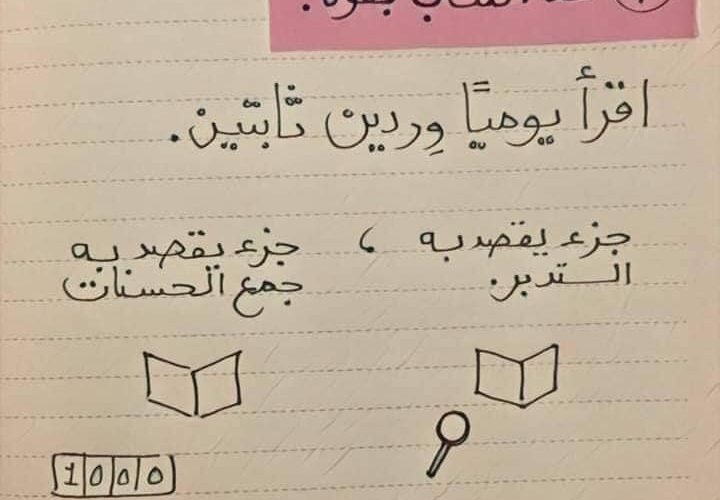 خذ الكتاب بقوة.
اقرأ يوميًا وِردين ثابتين.
جزء يقصد به التدبر.
، جزء يقصد به جمع الحسنات
1000